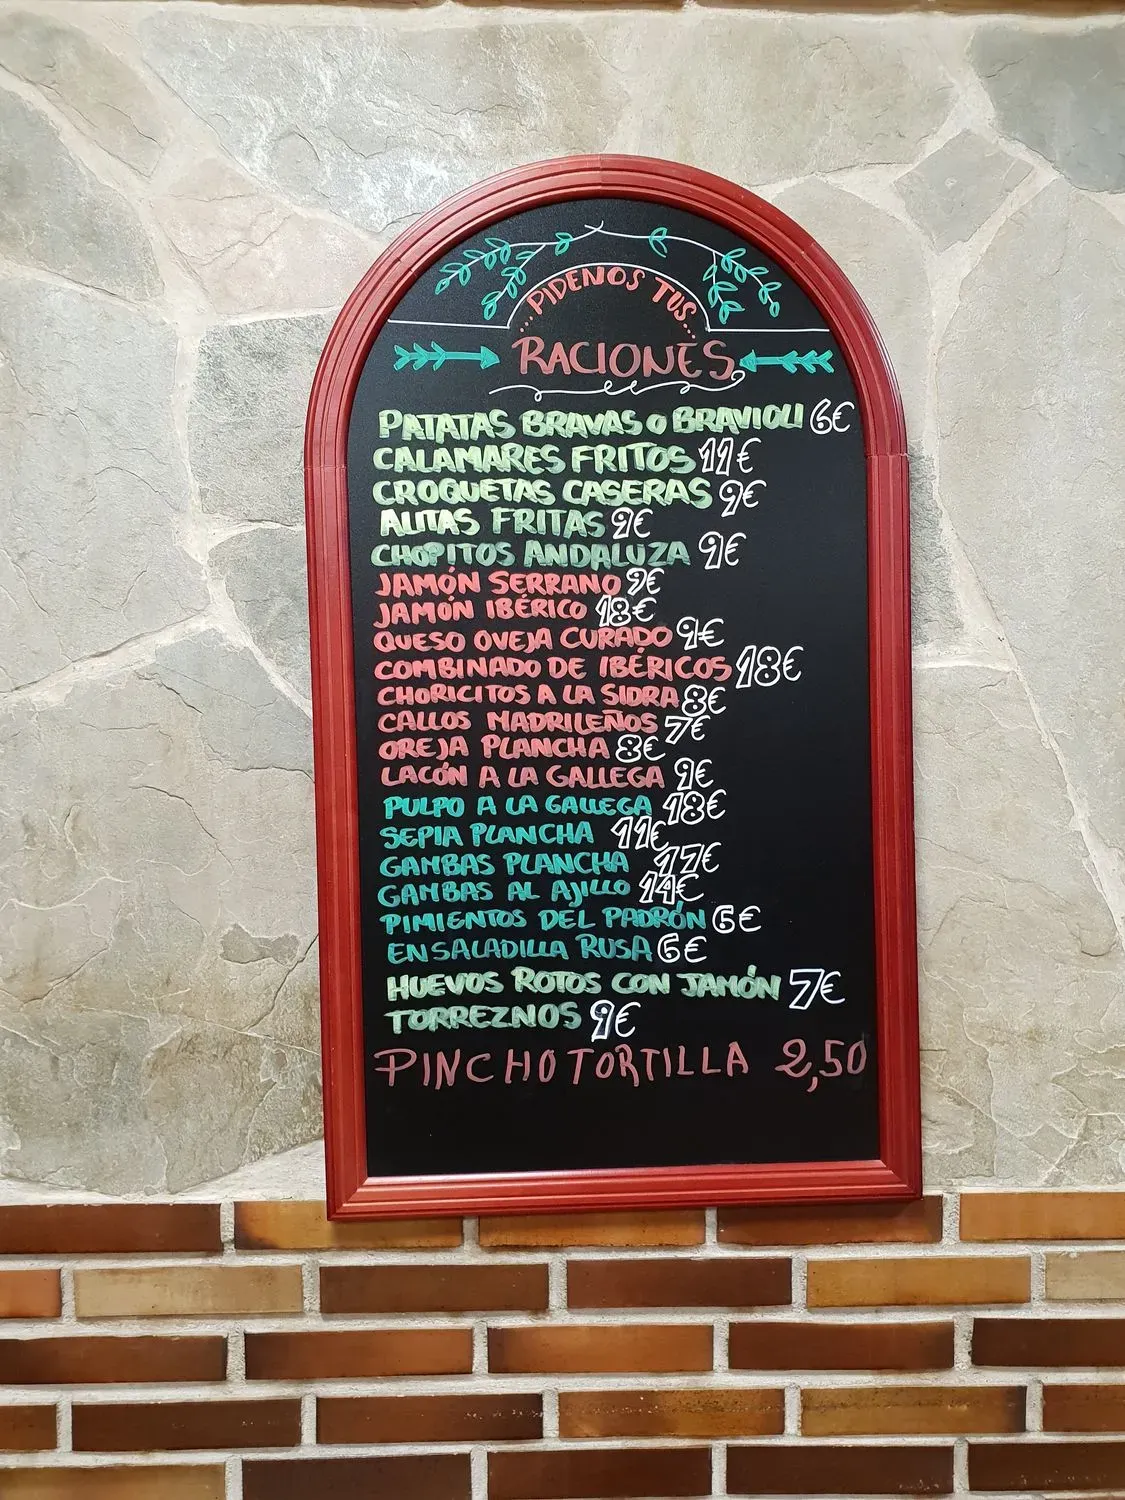 PIDENOS TUS
RACIONES
PATATAS BRAVAS o BRAVIOLI 6€
CALAMARES FRITOS 11€
CROQUETAS CASERAS 9€
ALITAS FRITAS 9€
CHOPITOS ANDALUZA 9€
JAMÓN SERRANO 9€
JAMÓN IBÉRICO 18€
QUESO OVEJA CURADO 9€
COMBINADO DE IBÉRICOS 18€
CHORICITOS A LA SIDRA 8€
CALLOS MADRILEÑOS 7€
OREJA PLANCHA 8€
LACÓN A LA GALLEGA 9€
PULPO A LA GALLEGA 18€
SEPIA PLANCHA 11€
GAMBAS PLANCHA 17€
GAMBAS AL AJILLO 14€
PIMIENTOS DEL PADRÓN 6€
ENSALADILLA RUSA 6€
HUEVOS ROTOS CON JAMÓN 7€
TORREZNOS 9€
PINCHO TORTILLA 2,50